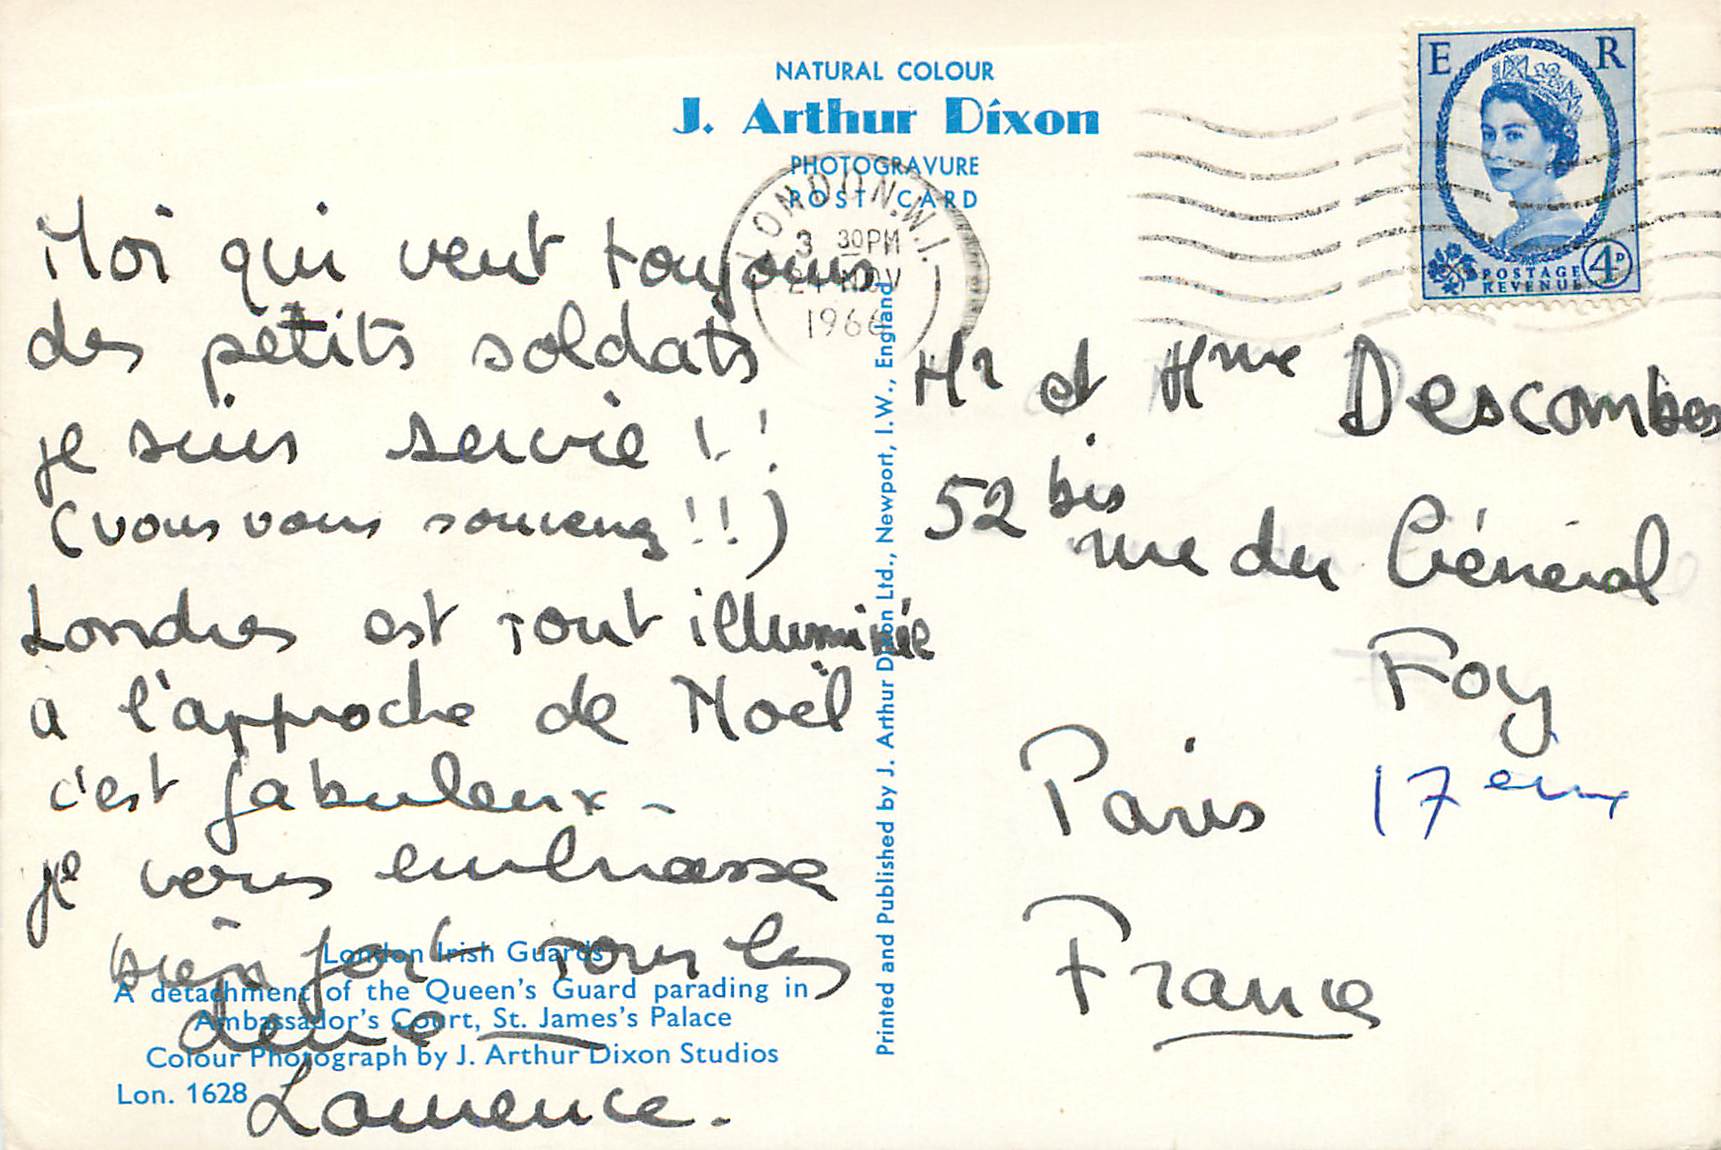 NATURAL COLOUR
J. Arthur Dixon
PHOTOGRAVURE
POST CARD
LONDON.W.1.
3 30PM
NOV
1966
E R
POSTAGE
REVENUE
4D
Moi qui veut toujours
des petits soldats
je suis servie !!
(vous vous souvenez !!)
Londres est tout illuminée
a l'approche de Noël
c'est fabuleux -
je vous embrasse
bien fort tous les
deux
Laurence.
Mr et Mme Descombes
52 bis
rue du Général
Foy
Paris 17eme
France
Printed and Published by J. Arthur Dixon Ltd., Newport, I.W., England
London Irish Guards
A detachment of the Queen's Guard parading in
Ambassador's Court, St. James's Palace
Colour Photograph by J. Arthur Dixon Studios
Lon. 1628